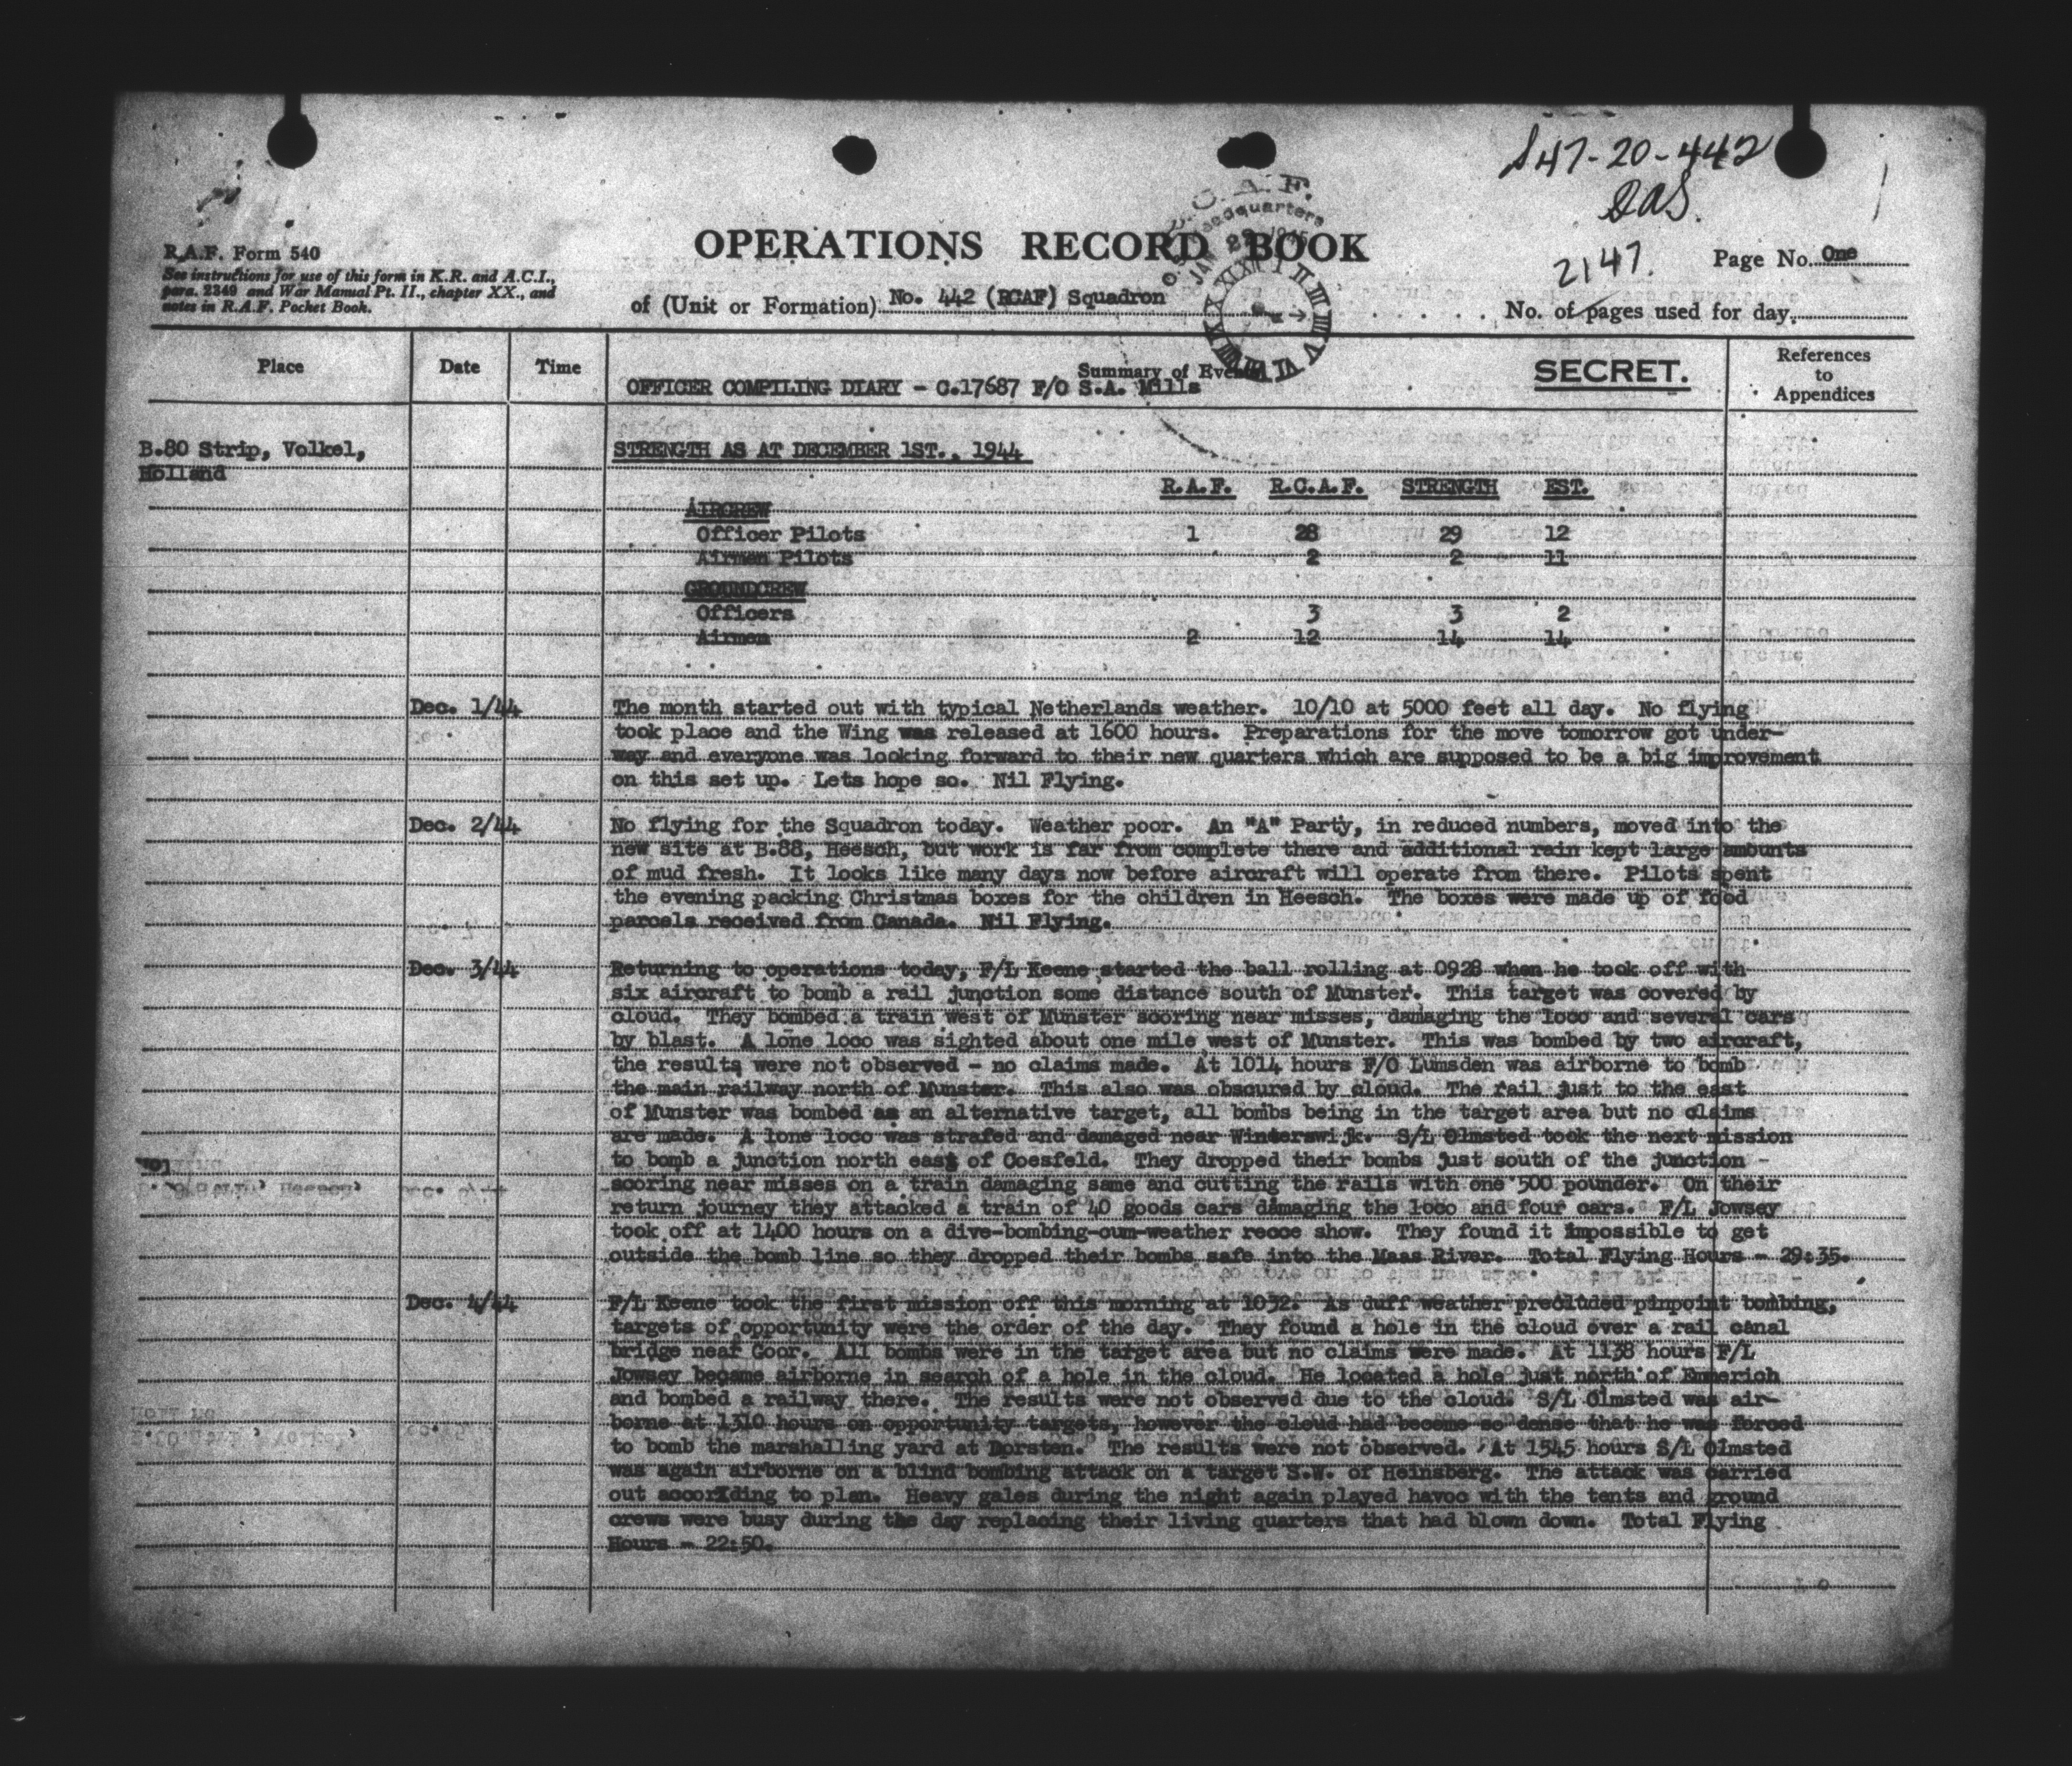 S47-20-442
DAS.
2147.
R.A.F. Form 540
See instructions for use of this form in K.R. and A.C.I.,
para. 2349 and War Manual Pt. II., chapter XX., and
notes in R.A.F. Pocket Book.
OPERATIONS RECORD BOOK
Page No. One
of (Unit or Formation) No. 442 (RCAF) Squadron
No. of pages used for day
R.C.A.F.
Headquarters
JAN 22 1945
Place Date Time Summary of Events SECRET. References
to
Appendices
OFFICER COMPILING DIARY - C.17687 F/O S.A. Mills
B.80 Strip, Volkel,
Holland
STRENGTH AS AT DECEMBER 1ST., 1944
R.A.F. R.C.A.F. STRENGTH EST.
AIRCREW
Officer Pilots 1 28 29 12
Airmen Pilots 2 2 11
GROUNDCREW
Officers 3 3 2
Airmen 2 12 14 14
Dec. 1/44 The month started out with typical Netherlands weather. 10/10 at 5000 feet all day. No flying
took place and the Wing was released at 1600 hours. Preparations for the move tomorrow got under-
way and everyone was looking forward to their new quarters which are supposed to be a big improvement
on this set up. Lets hope so. Nil Flying.
Dec. 2/44 No flying for the Squadron today. Weather poor. An "A" Party, in reduced numbers, moved into the
new site at B.88, Heesch, but work is far from complete there and additional rain kept large amounts
of mud fresh. It looks like many days now before aircraft will operate from there. Pilots spent
the evening packing Christmas boxes for the children in Heesch. The boxes were made up of food
parcels received from Canada. Nil Flying.
Dec. 3/44 Returning to operations today, F/L Keene started the ball rolling at 0928 when he took off with
six aircraft to bomb a rail junction some distance south of Munster. This target was covered by
cloud. They bombed a train west of Munster scoring near misses, damaging the loco and several cars
by blast. A lone loco was sighted about one mile west of Munster. This was bombed by two aircraft,
the results were not observed - no claims made. At 1014 hours F/O Lumsden was airborne to bomb
the main railway north of Munster. This also was obscured by cloud. The rail just to the east
of Munster was bombed as an alternative target, all bombs being in the target area but no claims
are made. A lone loco was strafed and damaged near Winterswijk. S/L Olmsted took the next mission
to bomb a junction north east of Coesfeld. They dropped their bombs just south of the junction -
scoring near misses on a train damaging same and cutting the rails with one 500 pounder. On their
return journey they attacked a train of 40 goods cars damaging the loco and four cars. F/L Jowsey
took off at 1400 hours on a dive-bombing-cum-weather recce show. They found it impossible to get
outside the bomb line so they dropped their bombs safe into the Maas River. Total Flying Hours - 29:35.
Dec. 4/44 F/L Keene took the first mission off this morning at 1032. As duff weather precluded pinpoint bombing,
targets of opportunity were the order of the day. They found a hole in the cloud over a rail canal
bridge near Goor. All bombs were in the target area but no claims were made. At 1138 hours F/L
Jowsey became airborne in search of a hole in the cloud. He located a hole just north of Emmerich
and bombed a railway there. The results were not observed due to the cloud. S/L Olmsted was air-
borne at 1310 hours on opportunity targets, however the cloud had become so dense that he was forced
to bomb the marshalling yard at Dorsten. The results were not observed. At 1545 hours S/L Olmsted
was again airborne on a blind bombing attack on a target S.W. of Heinsberg. The attack was carried
out accorXding to plan. Heavy gales during the night again played havoc with the tents and ground
crews were busy during the day replacing their living quarters that had blown down. Total Flying
Hours - 22:50.